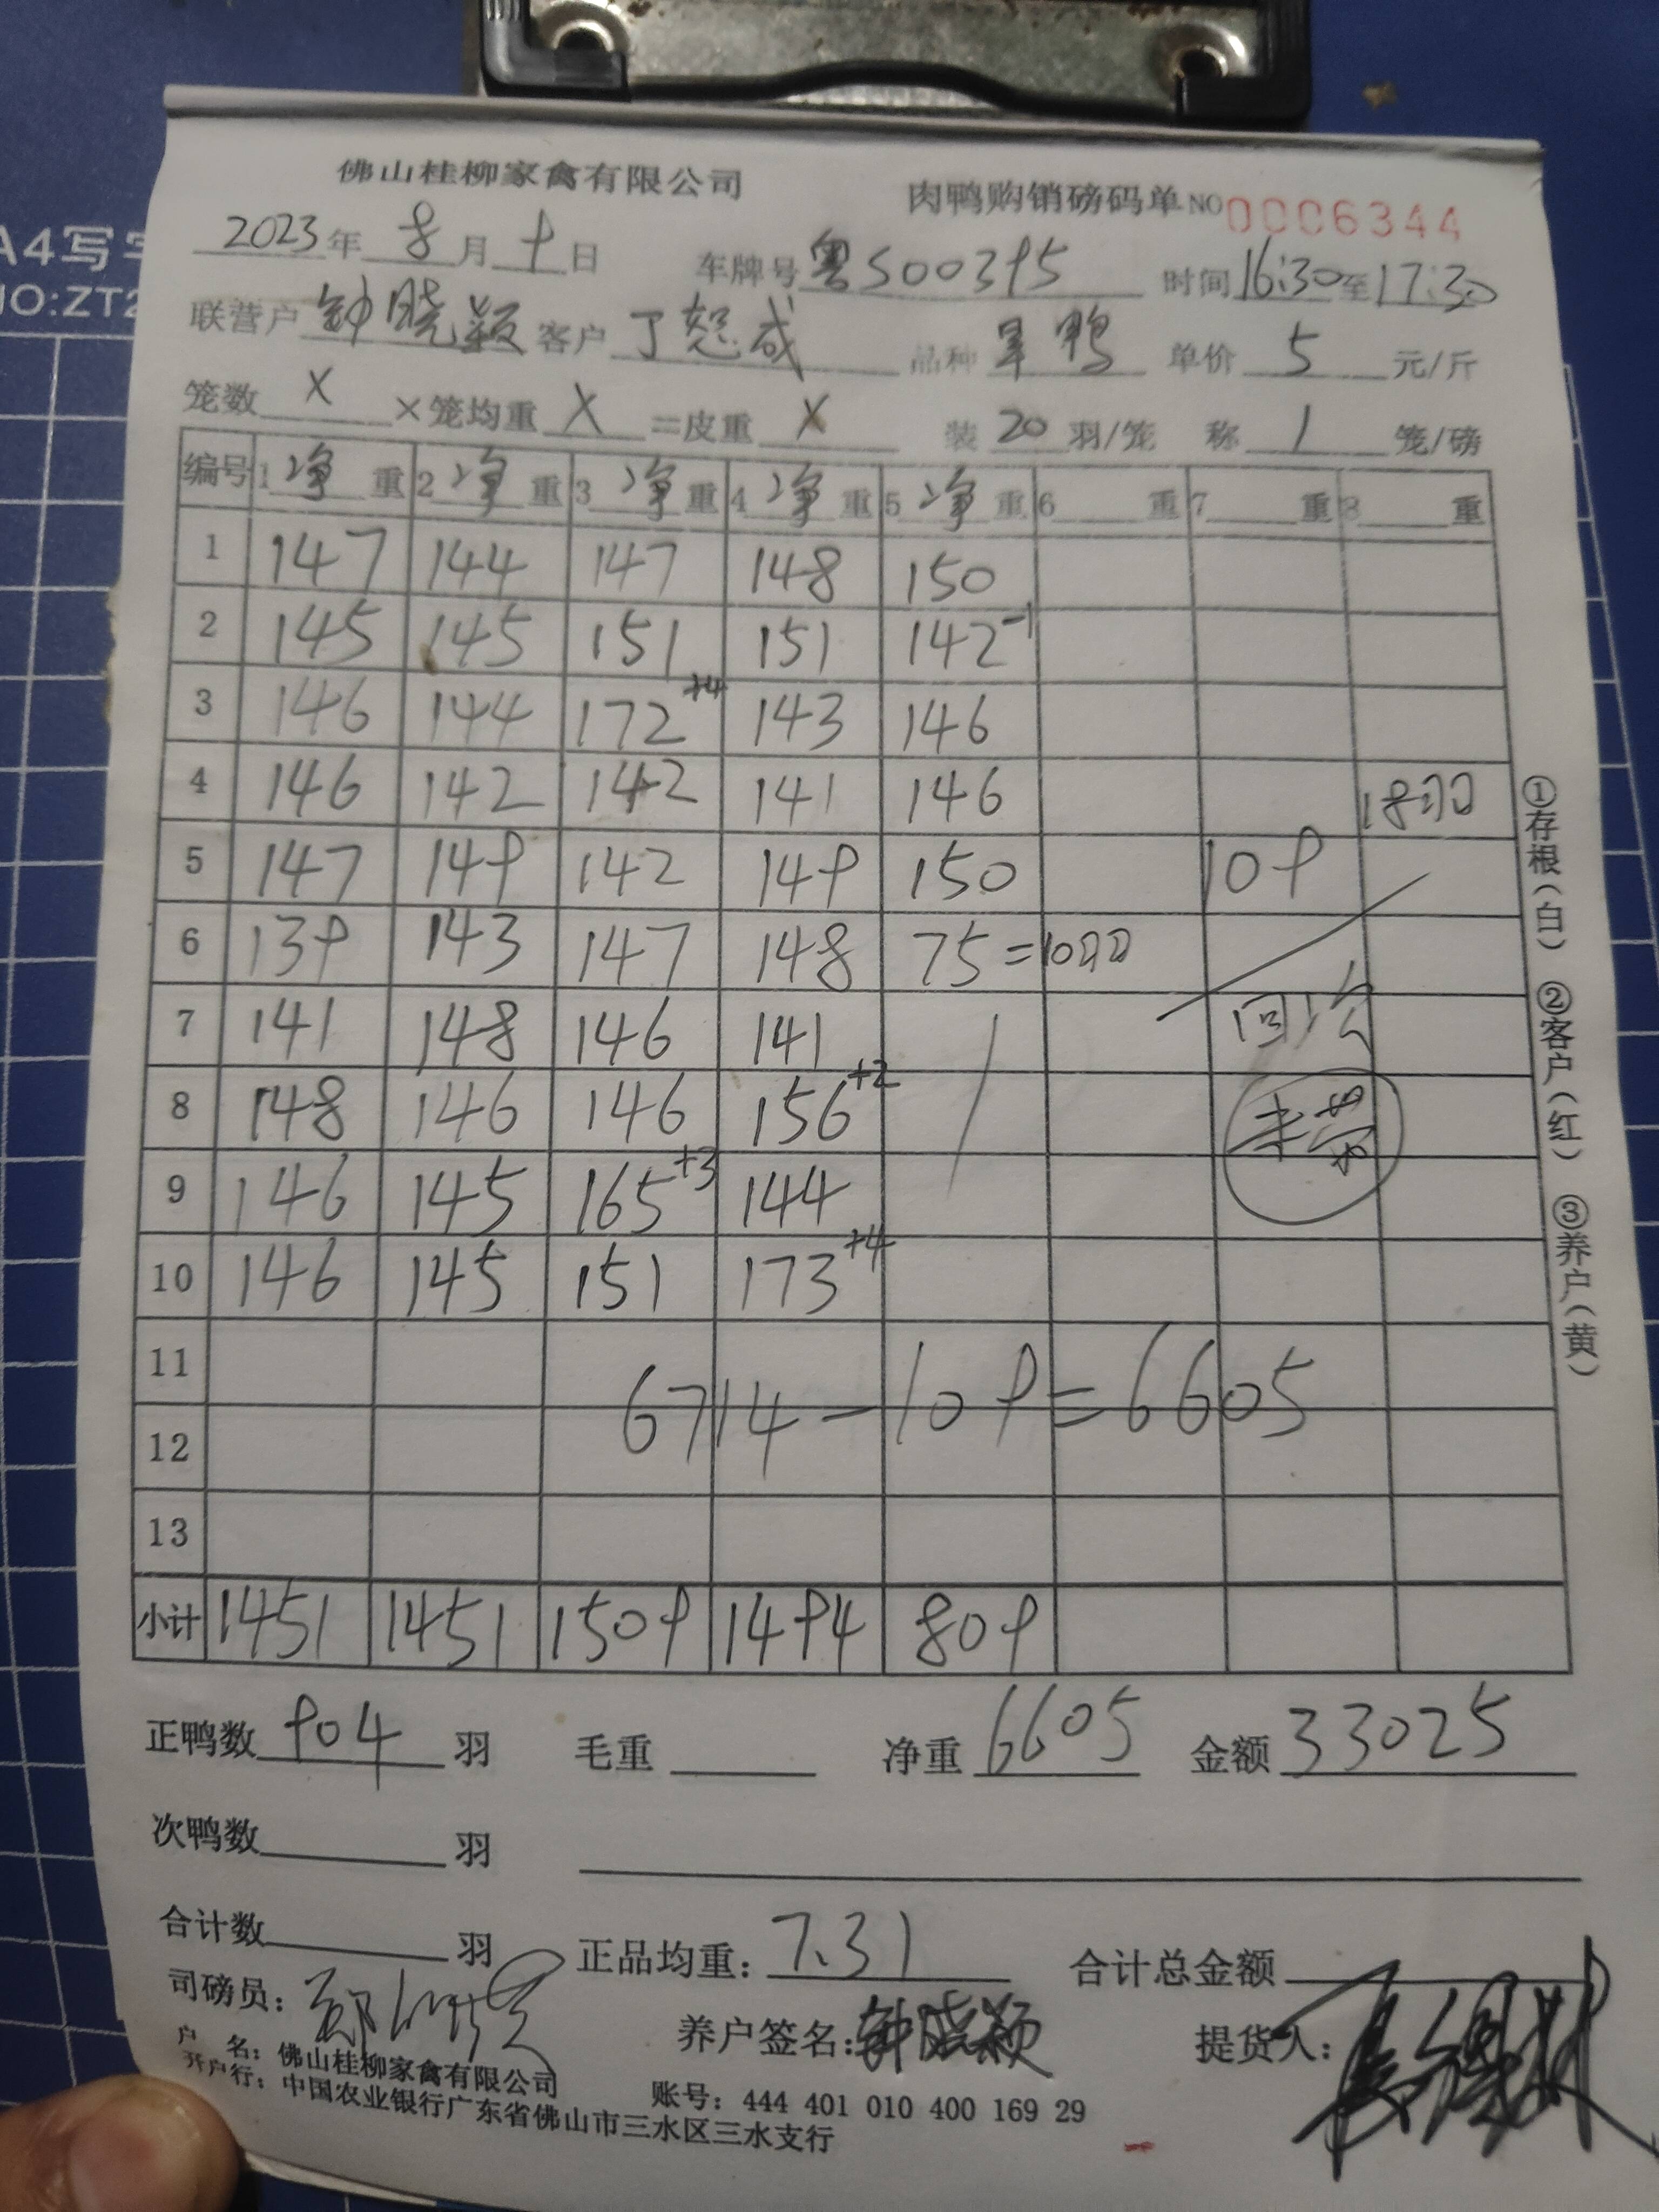 A4写字
NO:ZT2
佛山桂柳家禽有限公司 肉鸭购销磅码单 NO 0006344
2023年 8月 9日 车牌号 粤S00395 时间 16:30 至 17:30
联营户 钟晓颖 客户 丁恕成 品种 旱鸭 单价 5 元/斤
笼数 X ×笼均重 X =皮重 X 装 20 羽/笼 称 1 笼/磅
编号 1 净 重 2 净 重 3 净 重 4 净 重 5 净 重 6 重 7 重 8 重
1 147 144 147 148 150
2 145 145 151 151 142 -1
3 146 144 172 +4 143 146
4 146 142 142 141 146 18羽
5 147 149 142 149 150 109
6 139 143 147 148 75=10羽
7 141 148 146 141 回次
8 148 146 146 156 +2 未带
9 146 145 165 +3 144
10 146 145 151 173 +4
11
6714-109=6605
12
13
小计 1451 1451 1509 1494 809
①存根(白) ②客户(红) ③养户(黄)
正鸭数 904 羽 毛重 净重 6605 金额 33025
次鸭数 羽
合计数 羽 正品均重: 7.31 合计总金额
司磅员: 养户签名: 钟晓颖 提货人:
户 名: 佛山桂柳家禽有限公司 账号: 444 401 010 400 169 29
开户行: 中国农业银行广东省佛山市三水区三水支行